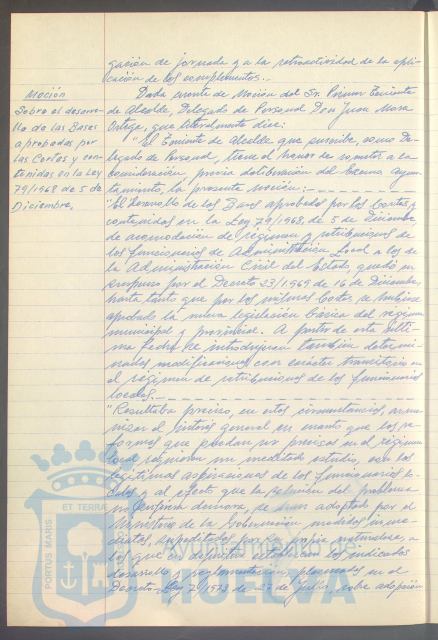 gación de jornada y a la retroactividad de la apli-
cación de los complementos.-
Moción
Sobre el desarro-
llo de las Bases
aprobadas por
las Cortes y con-
tenidas en la Ley
79/1968 de 5 de
Diciembre.
Dada cuenta de Moción del Sr. Primer Teniente
de Alcalde, Delegado de Personal Don Juan Mora
Ortega, que literalmente dice:
"El Teniente de Alcalde que suscribe, como De-
legado de Personal, tiene el honor de someter a la
consideración, previa deliberación del Excmo. Ayun-
tamiento, la presente Moción:-
"El desarrollo de las Bases aprobadas por las Cortes y
contenidas en la Ley 79/1968, de 5 de Diciembre
de acomodación de régimen y retribuciones de
los funcionarios de Administración Local a los de
la Administración Civil del Estado, quedó en
suspenso por el Decreto 23/1969 de 16 de Diciembre,
hasta tanto que por las mismas Cortes se hubiese
aprobado la nueva legislación básica del régimen
municipal y provincial. A partir de esta últi-
ma fecha se introdujeron también determi-
nadas modificaciones con carácter transitorio en
el régimen de retribuciones de los funcionarios
locales.-
"Resultaba preciso, en estas circunstancias, armo-
nizar el criterio general en cuanto que las re-
formas que puedan ser precisas en el régimen
local requieren un meditado estudio, con las
legítimas aspiraciones de los funcionarios lo-
cales y al efecto que la solución del problema
no sufriera demora, se han adoptado por el
Ministerio de la Gobernación medidas inme-
diatas, expeditadas por su propia naturaleza, a
las que con después establecen los indicados
desarrollo y reglamentación plasmados en el
Decreto-Ley 7/1973 de 27 de Julio, sobre adopción
PORTUS MARIS ET TERRAE
Ayuntamiento de
HUELVA